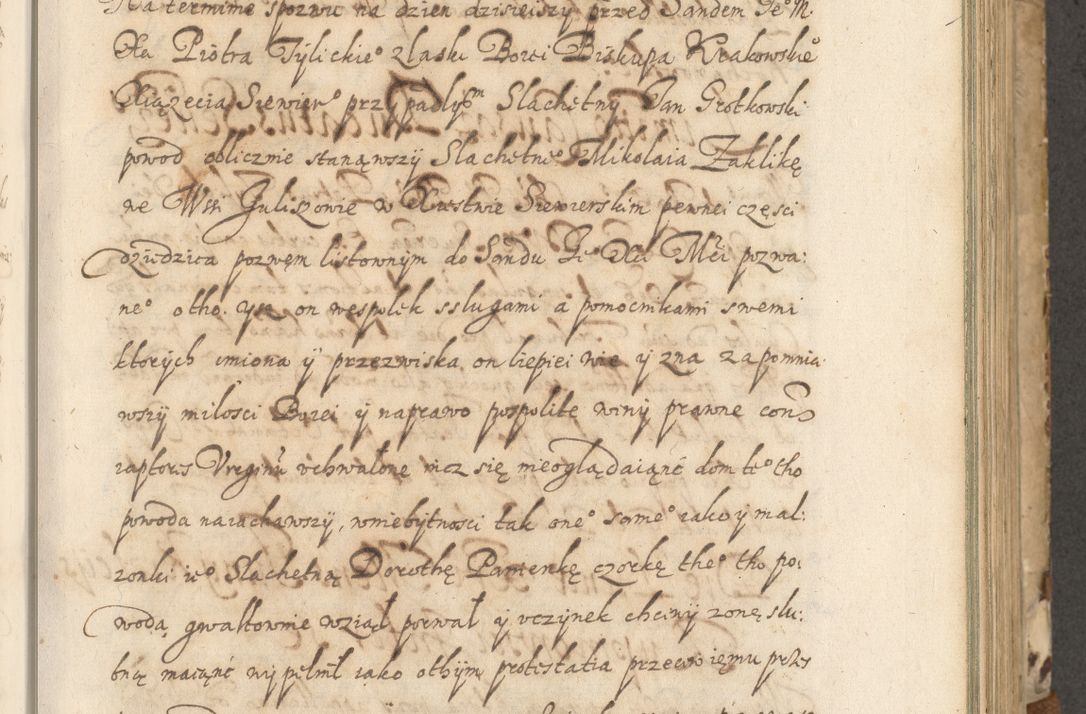 Na terminie spozwu na dzien dzisieiszy przed Sandem Jeº M.
Xa Piotra Tylickieº z laski Bozei Biskupa Krakowskieº
Xiązecia Siewierº przypadlym Slachetny Jan Grotkowski
powod oblicznie stanąwszy Slachetneº Mikolaia Zaklikę
we Wsi Guliszowie w Xiestwie Siewierskim pewnei części
dziedzica pozwem listownym do Sandu Jeº Xa Mci pozwa:
neº otho. ysz on wespolek sslugami a pomocnikami swemi
ktorych imiona y przezwiska on liepiei wie y zna zapomnia
wszy milosci Bozei y naprawo pospolite winy prawne contra
raptores Virginum vchwalone nicz się nieoglądaiąnc dom teº tho
powoda naiachawszy, wniebytnosci tak oneº sameº iako y mal:
zonki ieº Slachetną Dorothę Panienkę czorkę theº tho po:
woda, gwaltownie wziął porwał y vczynek chciwy zonę slu:
bną maiąnc wypelnił iako othym protestatia przeciwiemu przes